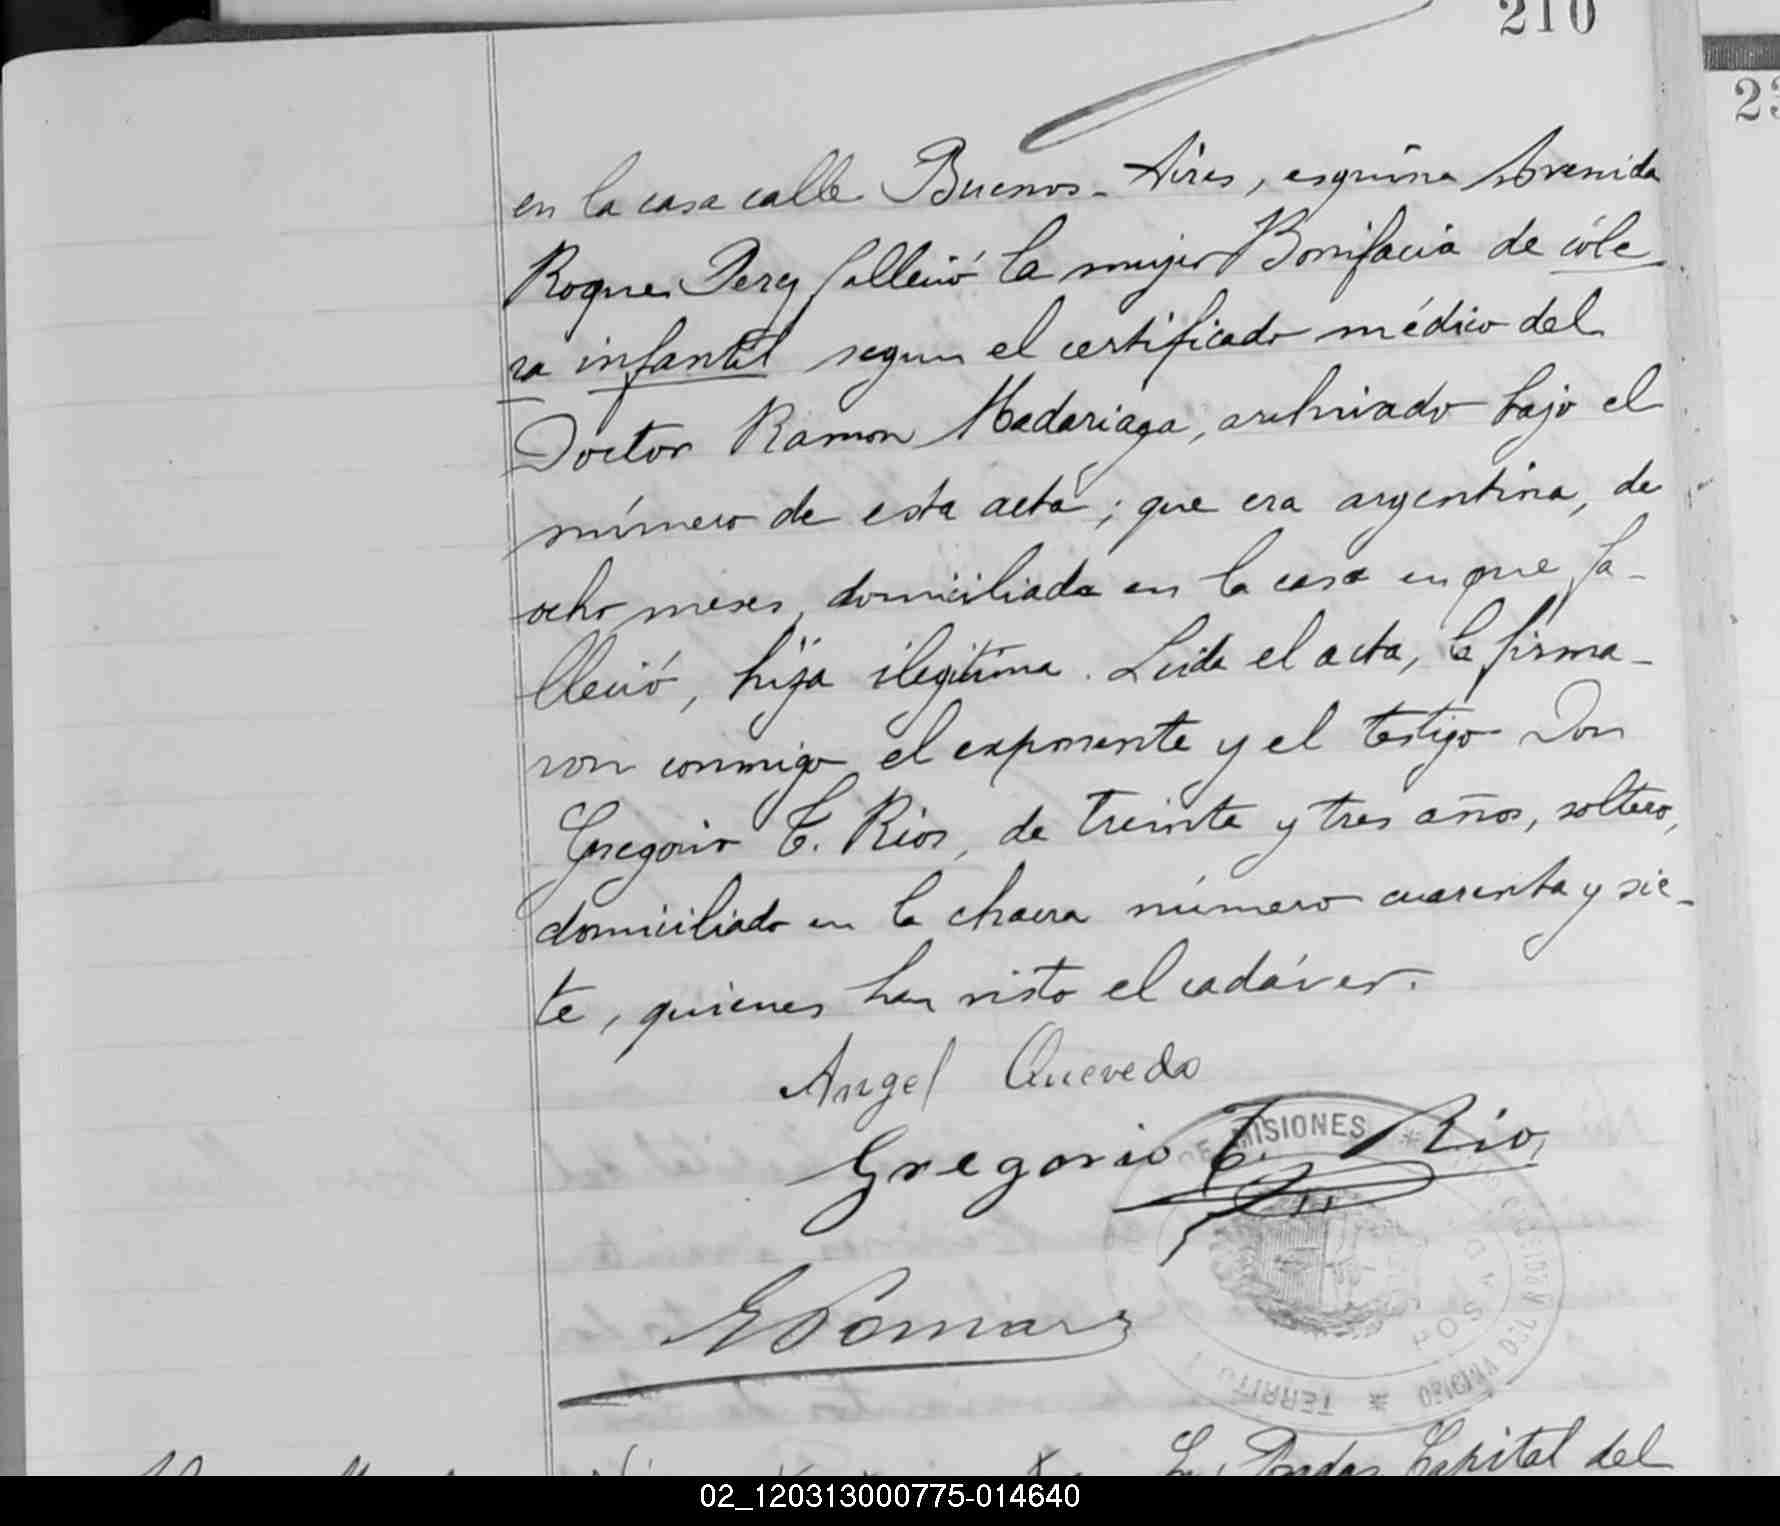 210
23
en la casa calle Buenos-Aires, esquina Avenida
Roque Perez falleció la mujer Bonifacia de cóle
ra infantil segun el certificado médico del
Doctor Ramon Madariaga, archivado bajo el
número de esta acta; que era argentina, de
ocho meses, domiciliada en la casa en que fa-
lleció, hija ilegitima. Leida el acta, la firma-
ron conmigo el exponente y el testigo Don
Gregorio T. Rios, de treinta y tres años, soltero,
domiciliado en la chacra número cuarenta y sie-
te, quienes han visto el cadáver.
Angel Quevedo
Gregorio T. Rios
DE MISIONES
TERRITO
POSADAS
En Posadas Capital del
02_120313000775-014640